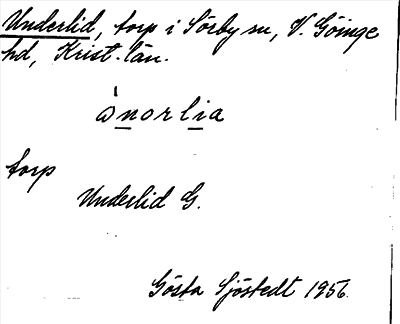 Underlid, torp i Sörby sn, V. Göinge
hd, Krist. län.
ὰnorlia
torp
Underlid G.
Gösta Sjöstedt 1956.